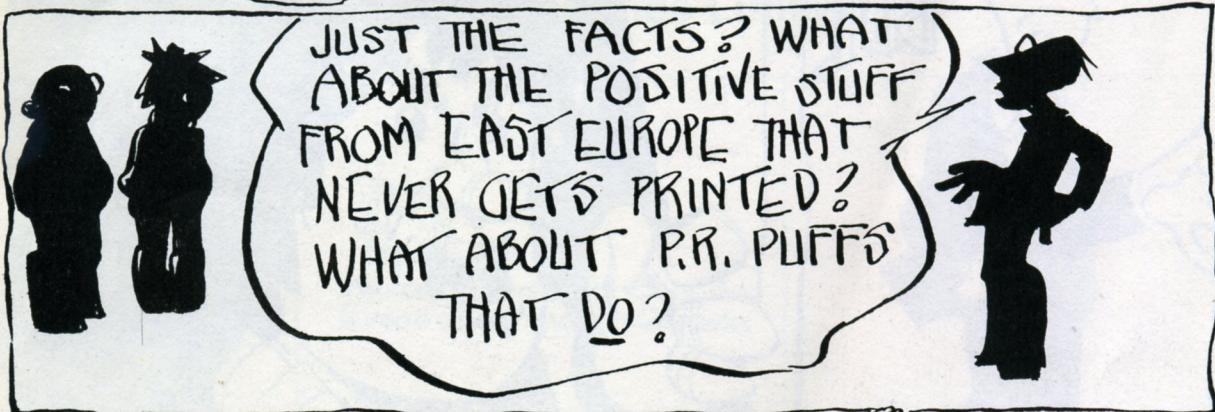 JUST THE FACTS? WHAT
ABOUT THE POSITIVE STUFF
FROM EAST EUROPE THAT
NEVER GETS PRINTED?
WHAT ABOUT P.R. PUFFS
THAT DO?